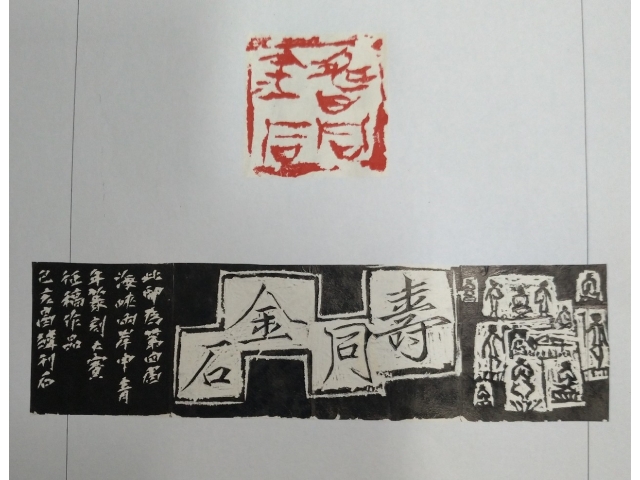 壽同
金石
壽同金石
此印为第四届
海峡两岸中青
年篆刻大賽
征稿作品
己亥刊石